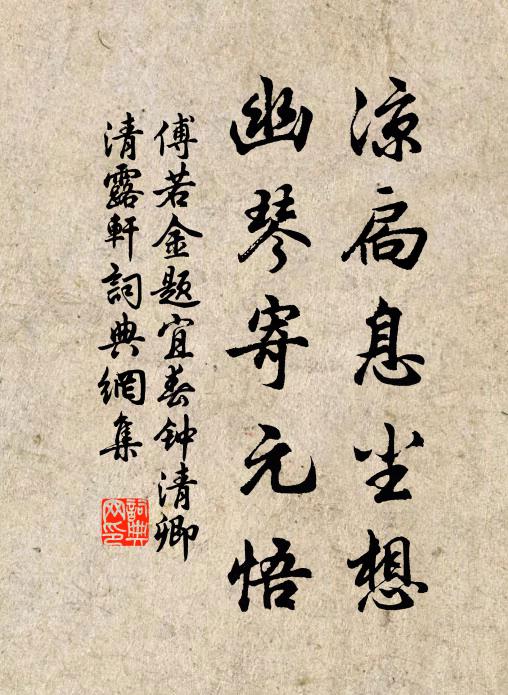 凉扃息尘想
幽琴寄元悟
傅若金题宜春钟清卿
清露軒詞典網集
詞典
网印